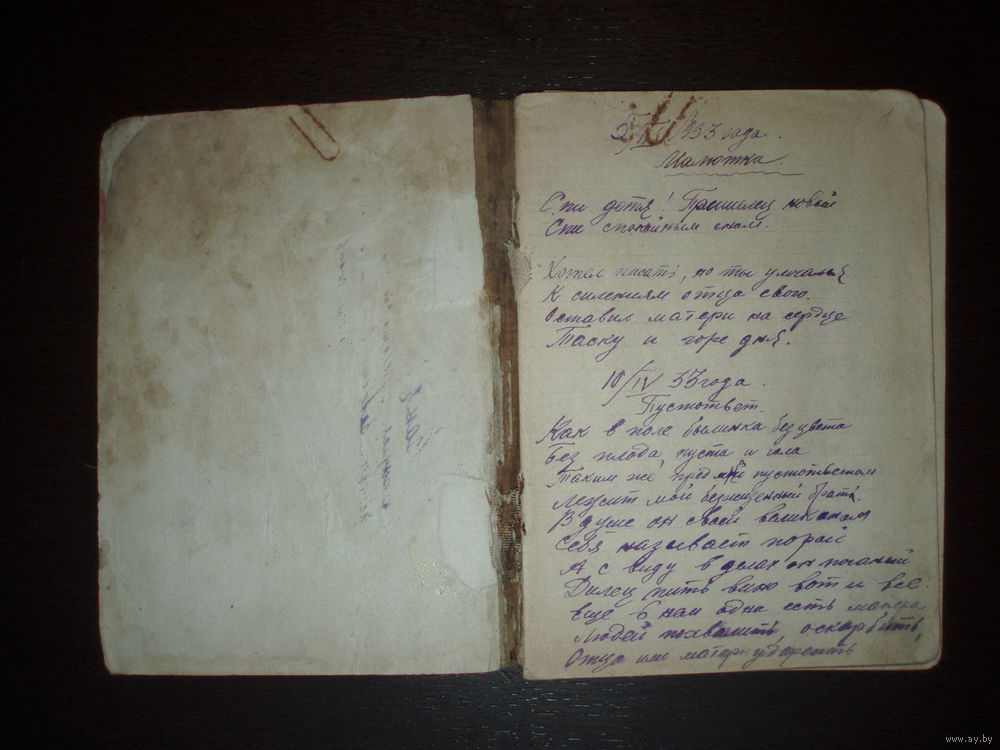 1
2/IV 1933 года.
Малютка.
Спи детя! Пришелец новый
Спи спокойным сном.
Хотел писать, но ты умчался
К селениям отца своего.
Оставил матери на сердце
Таску и горе дня.
10/IV 33 года.
Пустоцвет.
Как в поле былинка без цвета
Без плода, пуста и гола
Таким же, пред мной пустоцветом
Лежит мой брат.
В душе он своей великаном
Себя называет порой
А с виду в делах он поганый
пить вино вот и все.
еще в нем одна есть манера
Людей охвалить, оскорбить,
Отца или матерь ударить
www.ay.by